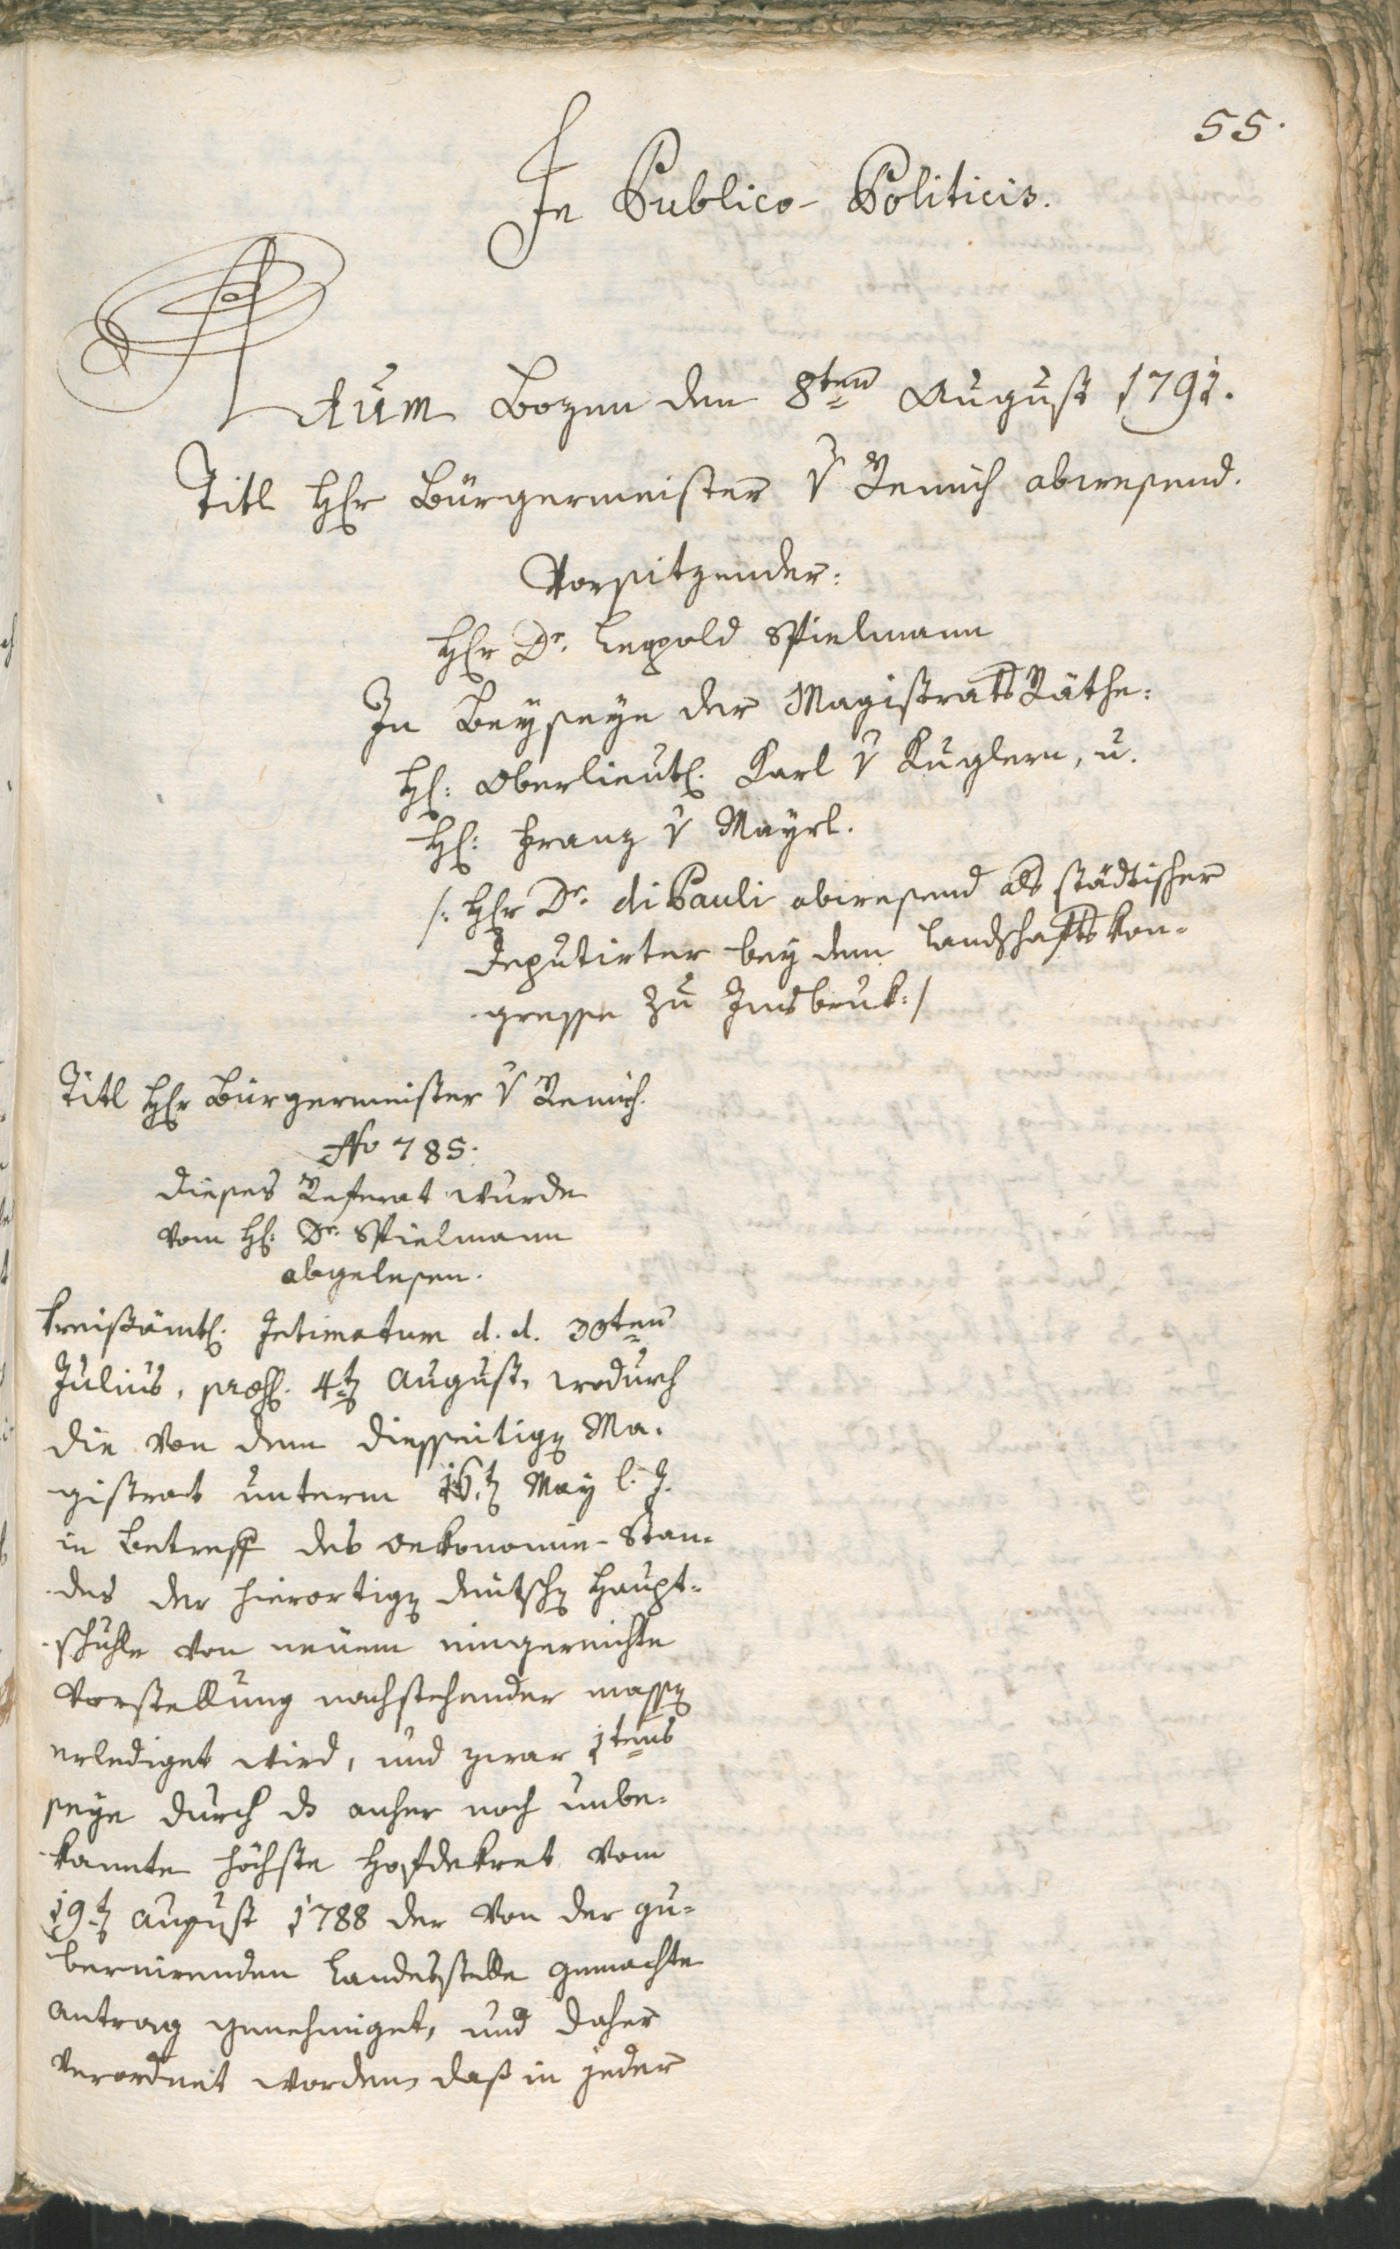 55.
In Publico-Politicis.
Actum Bozen den 8ten August 1791.
Titl Hr Bürgermeister v Remich abwesend.
Vorsitzender:
Hr Dr. Leopold Spielmann
In Beyseyn der Magistrats Räthe:
H: Oberlieut. Karl v Kuglern, u.
H: Franz v Mayrl.
/: Hr Dr. di Pauli abwesend als städtischer
Deputirter bey dem Landschafts kon-
gresse zu Insbruk :/
Titl Hr Bürgermeister v Remich.
No 785.
Dieses Referat wurde
vom H: Dr. Spielmann
abgelesen.
Kreisämtl. Intimatum d. d. 30ten
Julius, præs. 4t August, wodurch
die von dem diesseitigen Ma-
gistrat unterm 16.t May l. J.
in Betreff des Oekonomie-Stan-
des der hierortigen deutschen Haupt-
schule von neuem eingereichte
Vorstellung nachstehender massen
erlediget wird, und zwar 1tens
seye durch das anher noch unbe-
kannte höchste Hofdekret vom
19t August 1788 der von der gu-
bernirenden Landesstelle gemachte
Antrag genehmiget, und daher
verordnet worden, daß in jeder